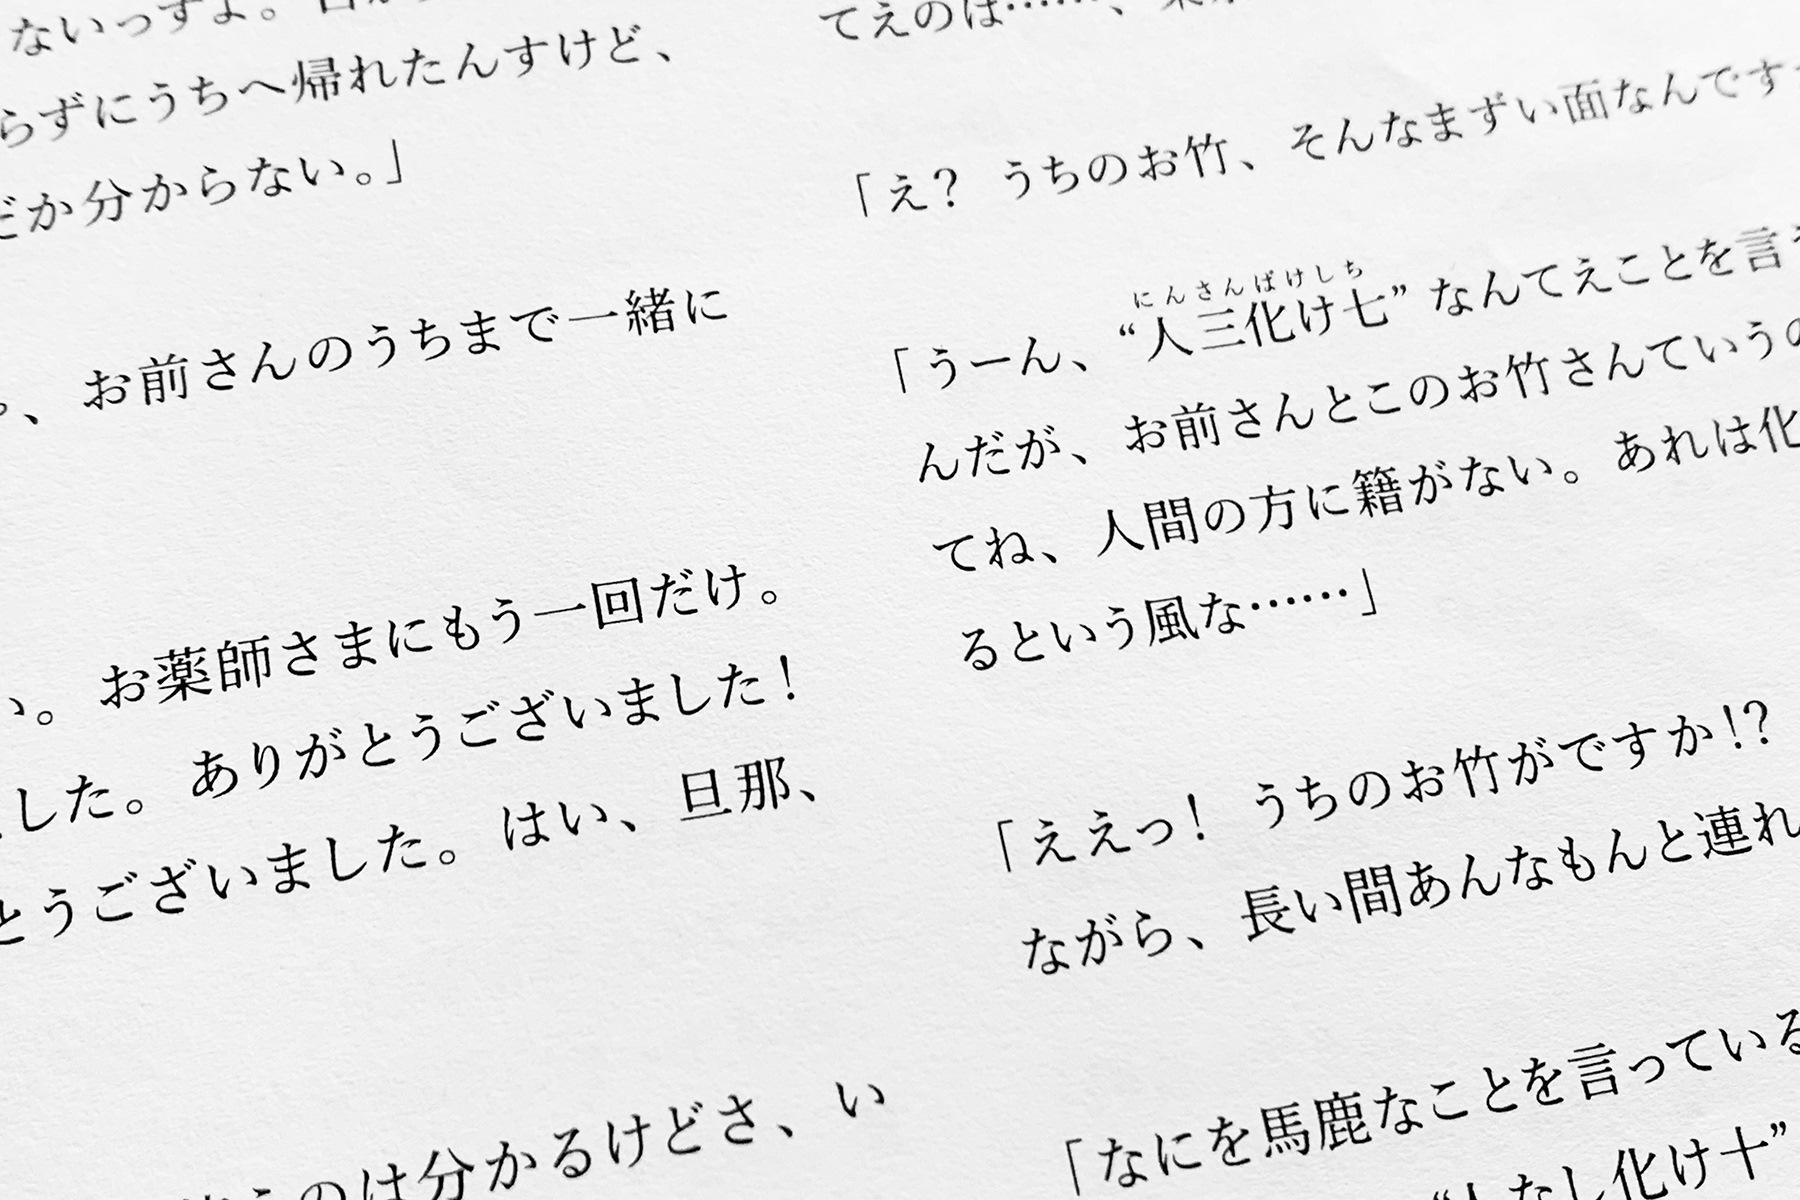 ないっすよ。
らずにうちへ帰れたんすけど、
だか分からない。」
、お前さんのうちまで一緒に
い。お薬師さまにもう一回だけ。
ました。ありがとうございました！
とうございました。はい、旦那、
うのは分かるけどさ、い
てえのは……、
「え？ うちのお竹、そんなまずい面なんです
にんさんばけしち
「うーん、“人三化け七”なんてえことを言う
んだが、お前さんとこのお竹さんていうの
てね、人間の方に籍がない。あれは化
るという風な……」
「ええっ！ うちのお竹がですか!?
ながら、長い間あんなもんと連れ
「なにを馬鹿なことを言っている
“人なし化け十”